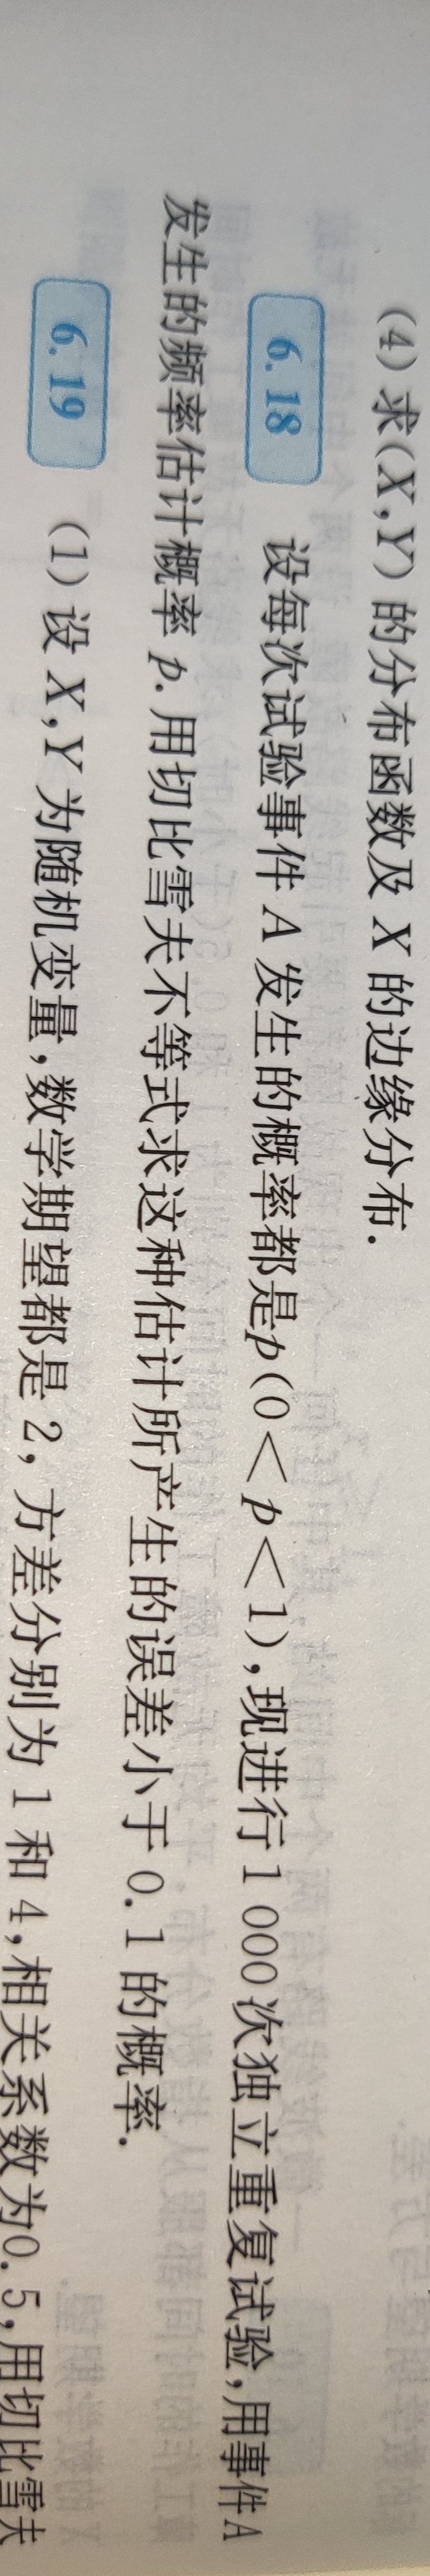 (4) 求(X,Y)的分布函数及 X 的边缘分布.
6.18 设每次试验事件 A 发生的概率都是p(0<p<1),现进行1 000次独立重复试验,用事件A
发生的频率估计概率 p. 用切比雪夫不等式求这种估计所产生的误差小于 0.1 的概率.
6.19 (1) 设 X,Y 为随机变量,数学期望都是 2,方差分别为 1 和 4,相关系数为0.5,用切比雪夫